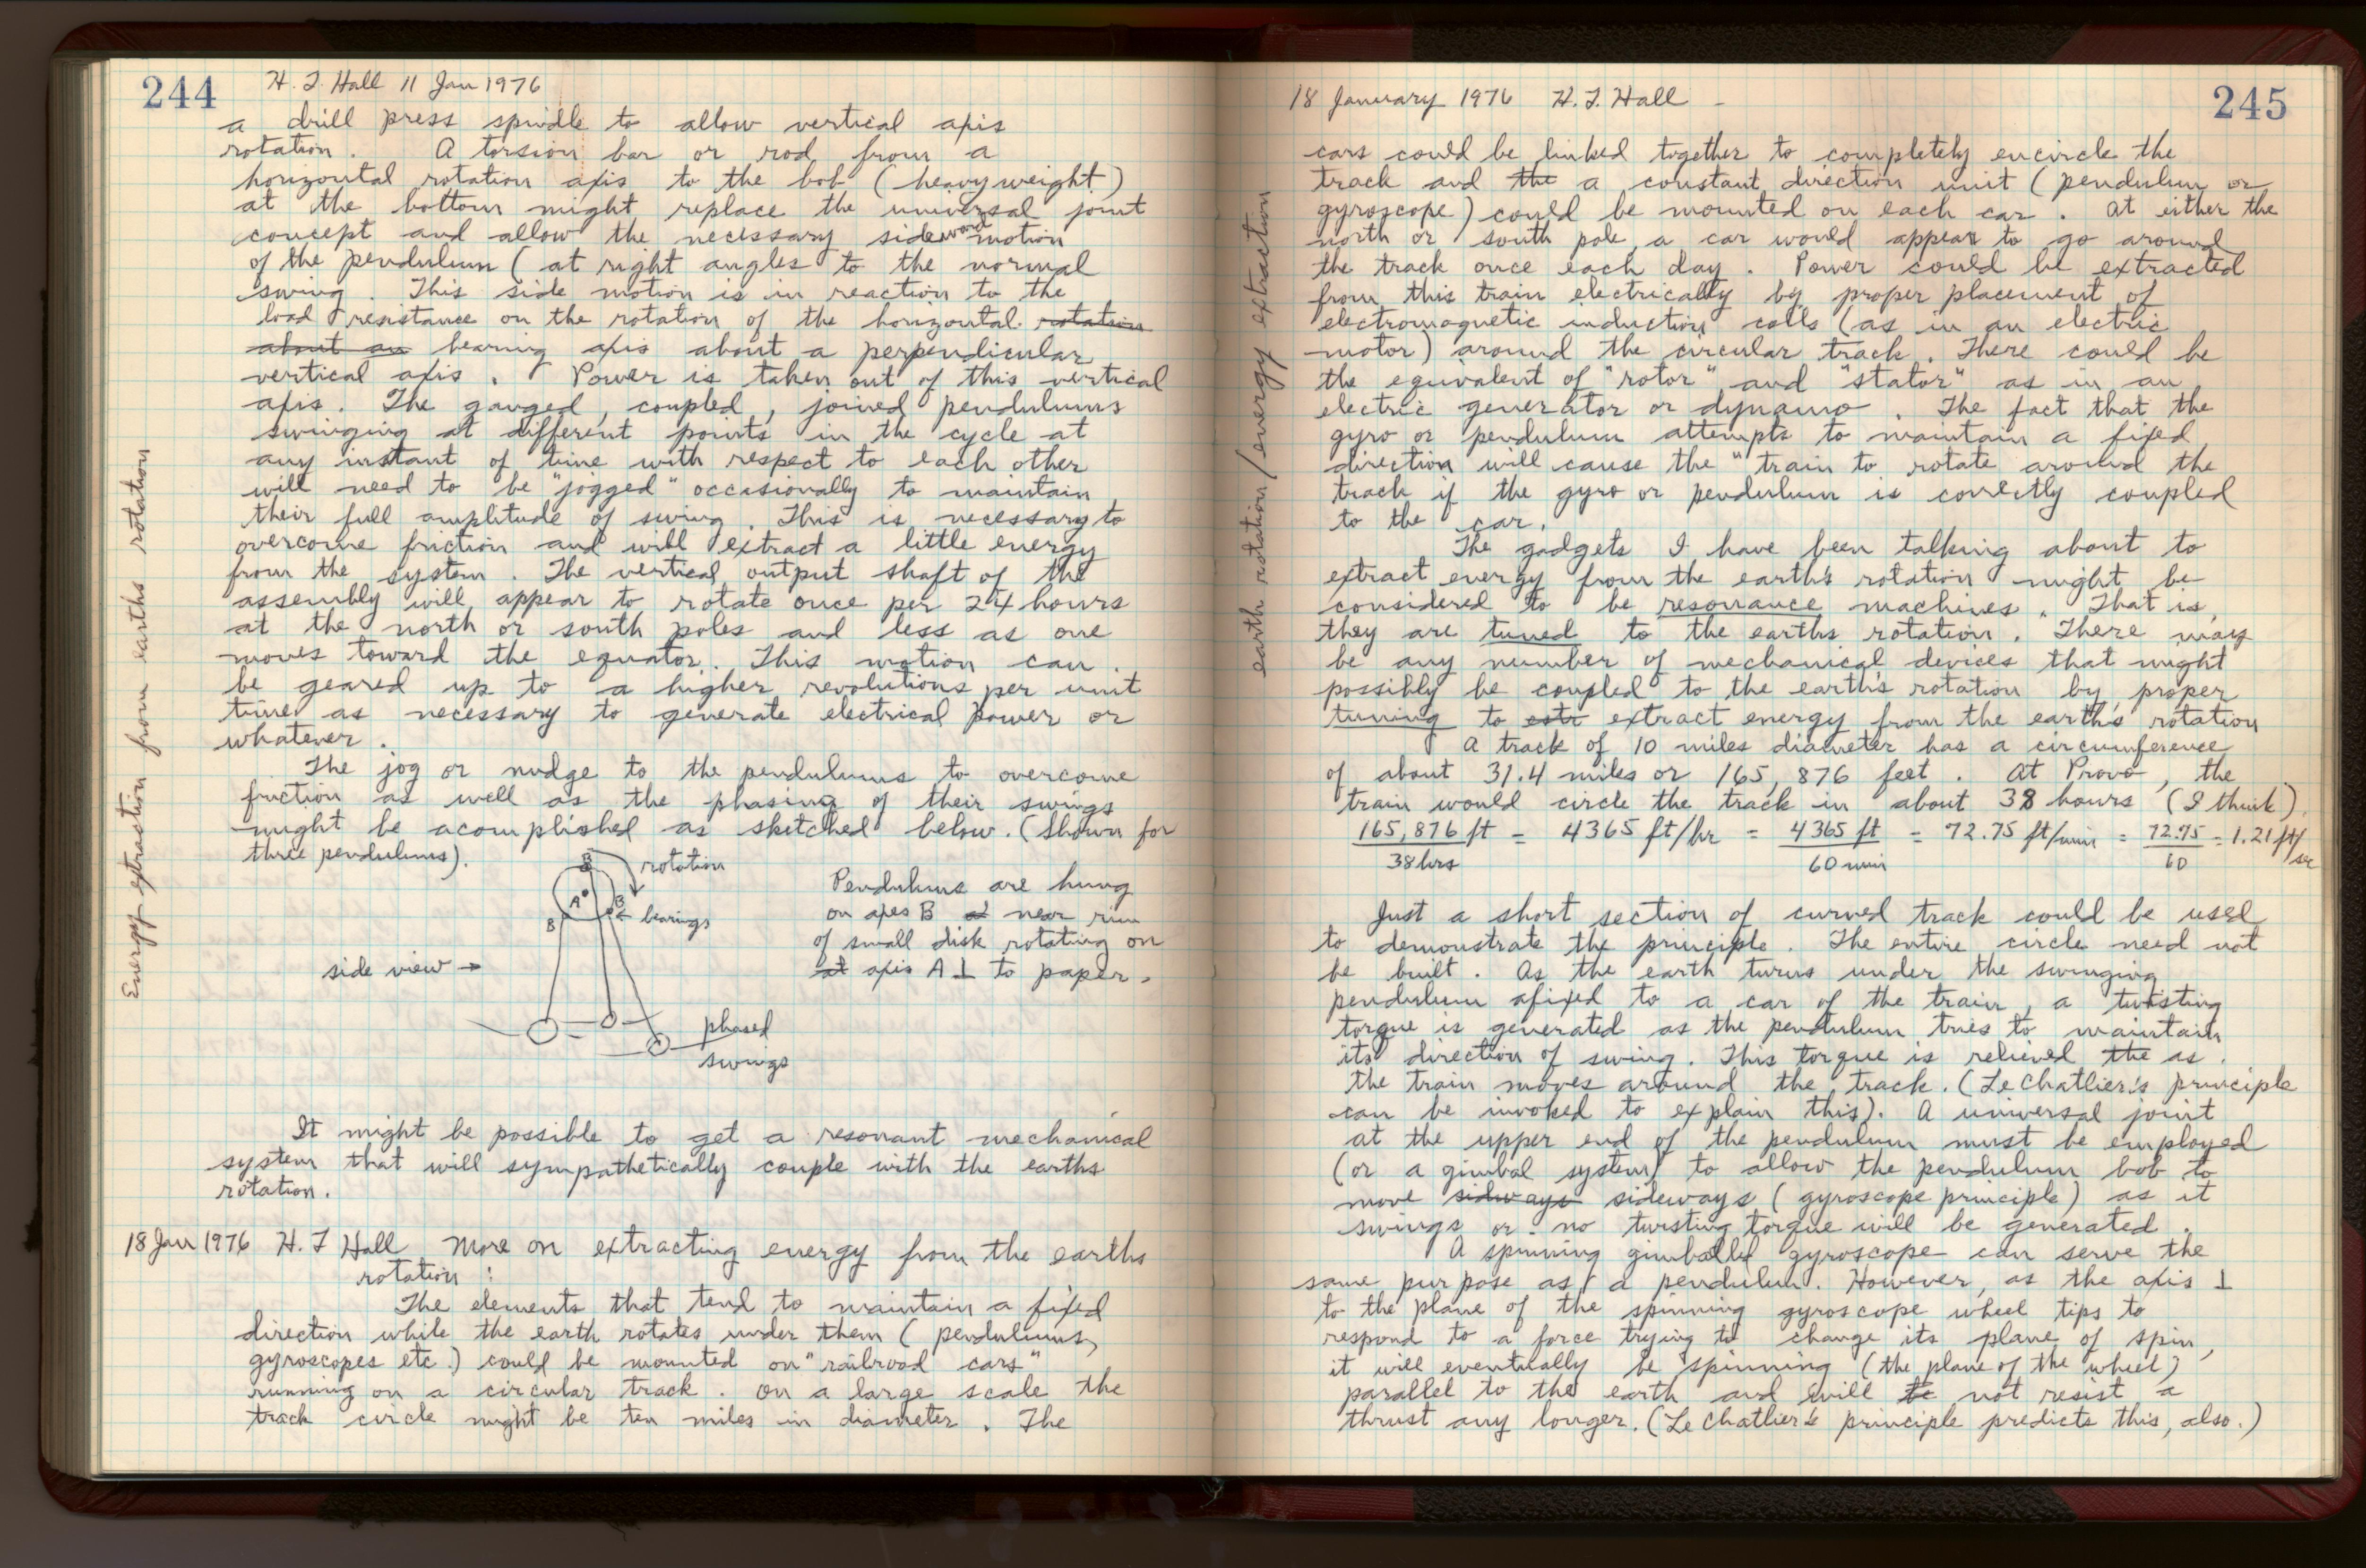 244
H. T. Hall 11 Jan 1976
a drill press spindle to allow vertical axis
rotation. A torsion bar or rod from a
horizontal rotation axis to the bob (heavy weight)
at the bottom might replace the universal joint
concept and allow the necessary sideward motion
of the pendulum (at right angles to the normal
swing. This side motion is in reaction to the
load resistance on the rotation of the horizontal rotation
about an bearing axis about a perpendicular
vertical axis. Power is taken out of this vertical
axis. The ganged, coupled, joined pendulums
swinging at different points in the cycle at
any instant of time with respect to each other
will need to be "jogged" occasionally to maintain
their full amplitude of swing. This is necessary to
overcome friction and will extract a little energy
from the system. The vertical output shaft of the
assembly will appear to rotate once per 24 hours
at the north or south poles and less as one
moves toward the equator. This motion can
be geared up to a higher revolutions per unit
time as necessary to generate electrical power or
whatever.
The jog or nudge to the pendulums to overcome
friction as well as the phasing of their swings
might be acomplished as sketched below. (Shown for
three pendulums).
B
rotation
A
B
B
bearings
side view →
Pendulums are hung
on axes B at near rim
of small disk rotating on
at axis A ⊥ to paper.
phased
swings
It might be possible to get a resonant mechanical
system that will sympathetically couple with the earths
rotation.
18 Jan 1976 H. T Hall More on extracting energy from the earths
rotation:
The elements that tend to maintain a fixed
direction while the earth rotates under them (pendulums,
gyroscopes etc.) could be mounted on "railroad cars"
running on a circular track. On a large scale the
track circle might be ten miles in diameter. The
Energy extraction from earths rotation
18 January 1976 H. T. Hall
245
cars could be linked together to completely encircle the
track and the a constant direction unit (pendulum or
gyroscope) could be mounted on each car. At either the
north or south pole a car would appear to go around
the track once each day. Power could be extracted
from this train electrically by proper placement of
electromagnetic induction coils (as in an electric
motor) around the circular track. There could be
the equivalent of "rotor" and "stator" as in an
electric generator or dynamo. The fact that the
gyro or pendulum attempts to maintain a fixed
direction will cause the "train to rotate around the
track if the gyro or pendulum is correctly coupled
to the car.
The gadgets I have been talking about to
extract energy from the earth's rotation might be
considered to be resonance machines. That is,
they are tuned to the earths rotation. There may
be any number of mechanical devices that might
possibly be coupled to the earth's rotation by proper
tuning to extr extract energy from the earth's rotation
A track of 10 miles diameter has a circumference
of about 31.4 miles or 165,876 feet. At Provo, the
train would circle the track in about 38 hours (I think).
165,876 ft / 38 hrs = 4365 ft/hr = 4365 ft / 60 min = 72.75 ft/min = 72.75 / 60 = 1.21 ft/sec
Just a short section of curved track could be used
to demonstrate the principle. The entire circle need not
be built. As the earth turns under the swinging
pendulum afixed to a car of the train, a twisting
torque is generated as the pendulum tries to maintain
its direction of swing. This torque is relieved the as
the train moves around the track. (Le Chatlier's principle
can be invoked to explain this). A universal joint
at the upper end of the pendulum must be employed
(or a gimbal system) to allow the pendulum bob to
move sideways sideways (gyroscope principle) as it
swings or no twisting torque will be generated.
A spinning gimballed gyroscope can serve the
same purpose as a pendulum. However, as the axis ⊥
to the plane of the spinning gyroscope wheel tips to
respond to a force trying to change its plane of spin,
it will eventually be spinning (the plane of the wheel)
parallel to the earth and will to not resist a
thrust any longer. (Le Chatlier's principle predicts this, also.)
earth rotation/energy extraction